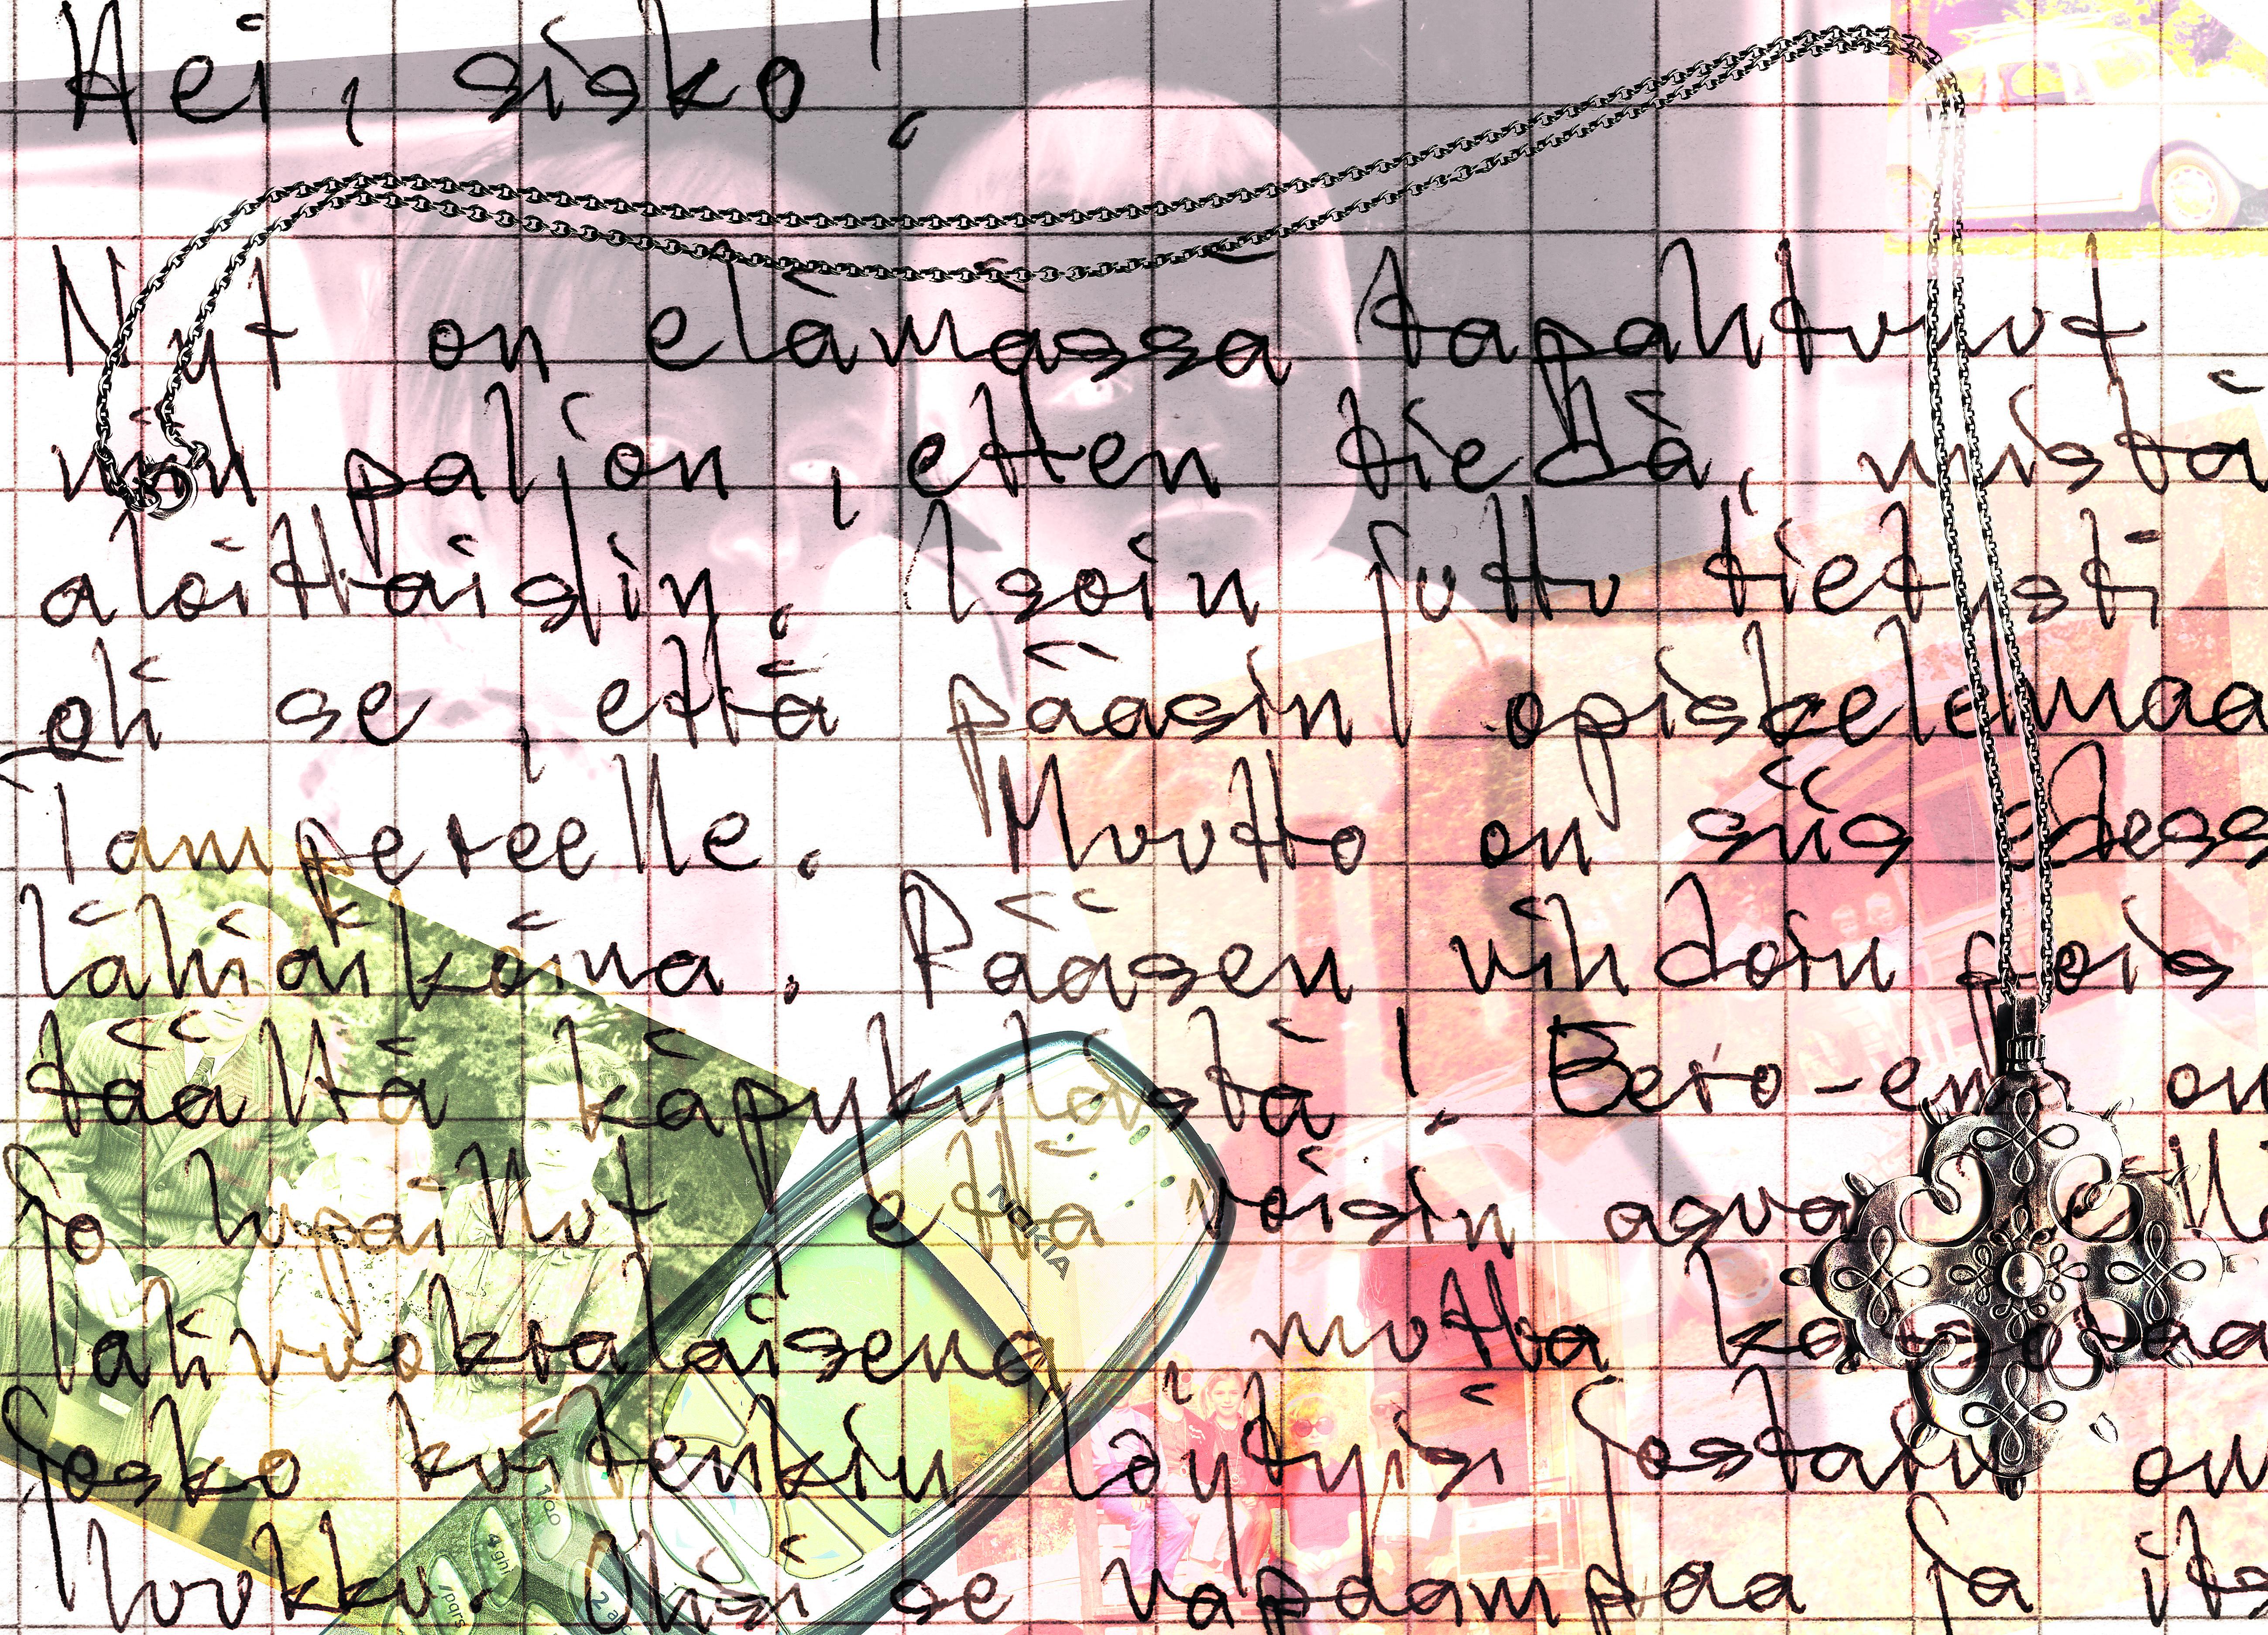 Hei, sisko!
Nyt on elämässä tapahtunut
niin paljon, etten tiedä, mistä
aloittaisin. Isoin juttu tietysti
oli se, että pääsin opiskelemaa
Tampereelle. Muutto on siis edess
lähiaikoina. Pääsen vihdoin pois
täältä käpykylästä! Eero-eno on
jo lupaillut, että voisin asua
alivuokralaisena, mutta katsotaa
josko kuitenkin löytyisi jostain om
luukku. Olisi se vapaampaa ja its
NOKIA
1 oo
4 ghi
pqrs
2